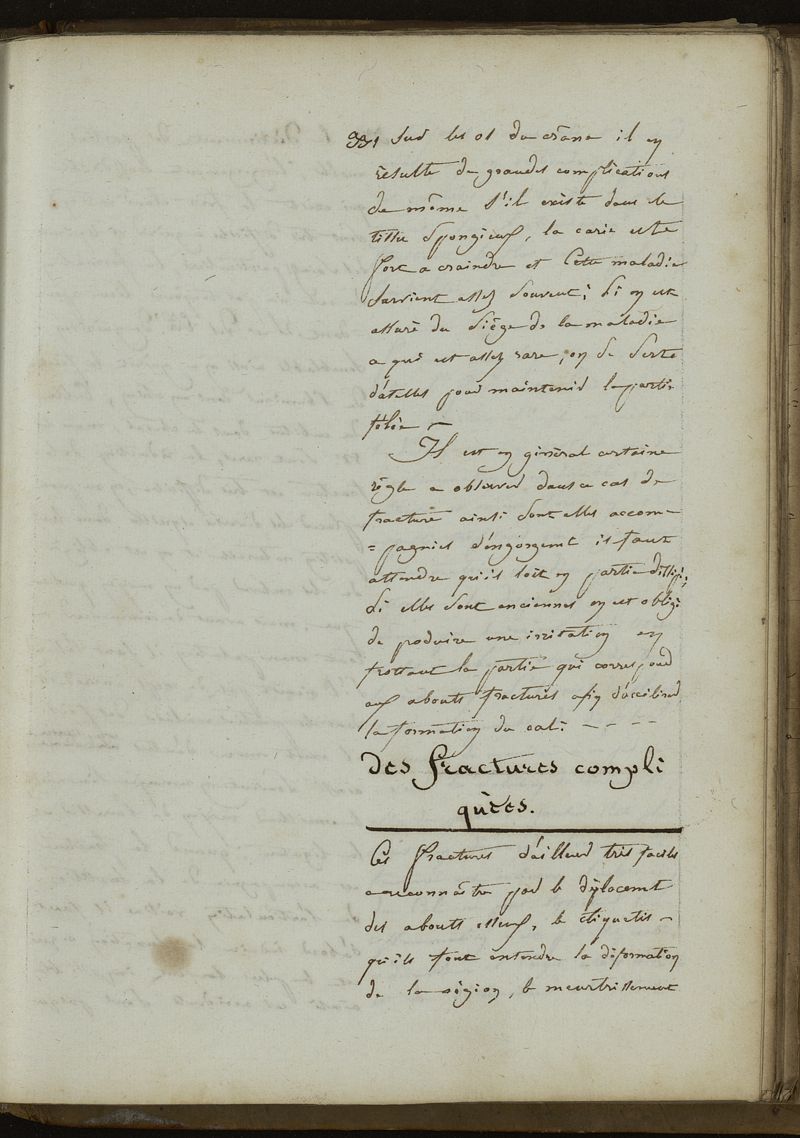 331 Sur les os du crâne il en
résulte de grandes complications
de même s'il existe dans le
tissu spongieux, la carie est
fort a craindre et Cette maladie
survient assez souvent; si on est
assuré du siège de la maladie
a qui est assez rare, on se serte
d'atelles pour maintenir la partie
félée —
Il est en général certaine
règle a observer dans ce cas de
fracture ainsi sont elles accom—
=pagnées d'engorgement il faut
attendre qu'il soit en partie dissipé,
si elles sont anciennes on est obligé
de produire une irritation en
frottant la partie qui correspond
aux abouts fracturés afin d'accélérer
la formation du cal: — — — —
des fractures compli
quées.
Ces fractures d'ailleurs très faciles
a reconnaître par le déplacement
des abouts osseux, le cliquetis —
qu'ils font entendre la déformation
de la région, le meurtrissement